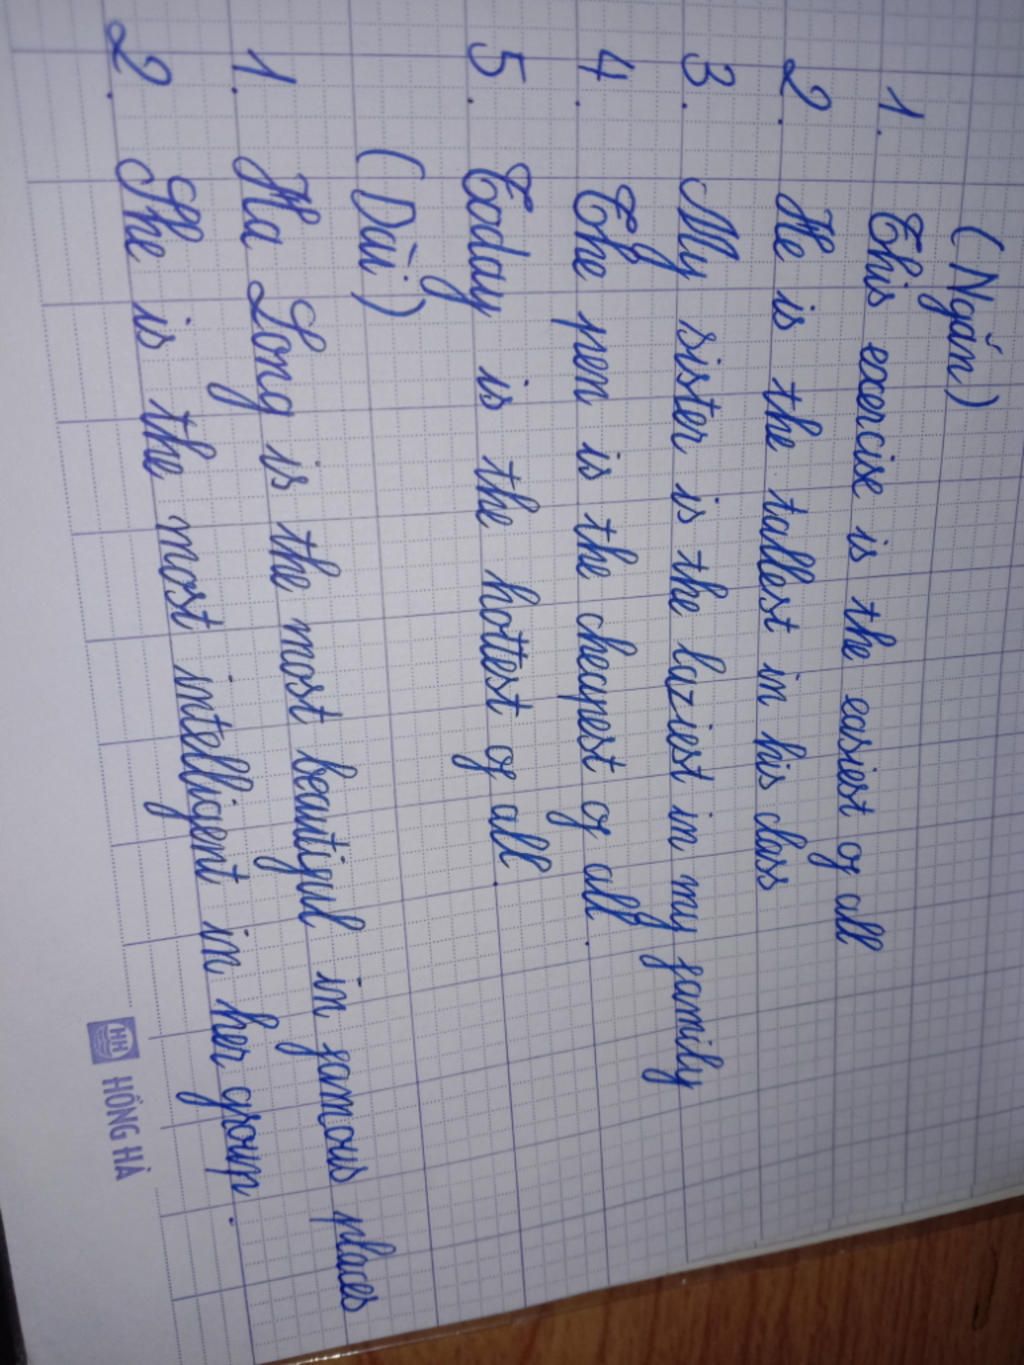 (Ngắn)
1. This exercise is the easiest of all
2. He is the tallest in his class
3. My sister is the laziest in my family
4. The pen is the cheapest of all.
5. Today is the hottest of all.
(Dài)
1. Ha Long is the most beautiful in famous places
2. She is the most intelligent in her group.
HH HỒNG HÀ